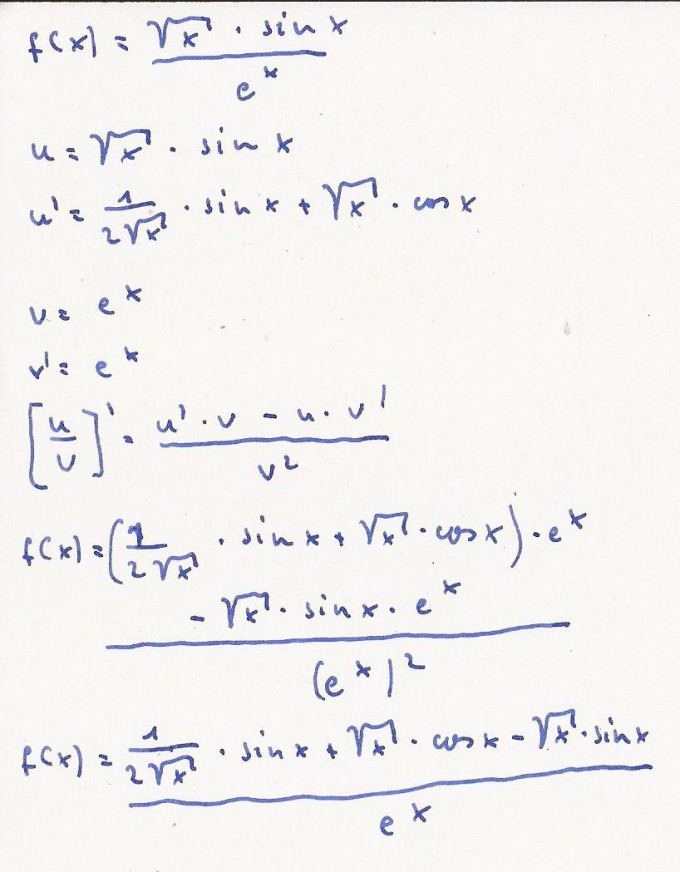 f(x) = (√x · sin x) / e^x
u = √x · sin x
u' = 1/(2√x) · sin x + √x · cos x
v = e^x
v' = e^x
[u/v]' = (u' · v - u · v') / v²
f(x) = (1/(2√x) · sin x + √x · cos x) · e^x
- √x · sin x · e^x
/ (e^x)²
f(x) = (1/(2√x) · sin x + √x · cos x - √x · sin x) / e^x